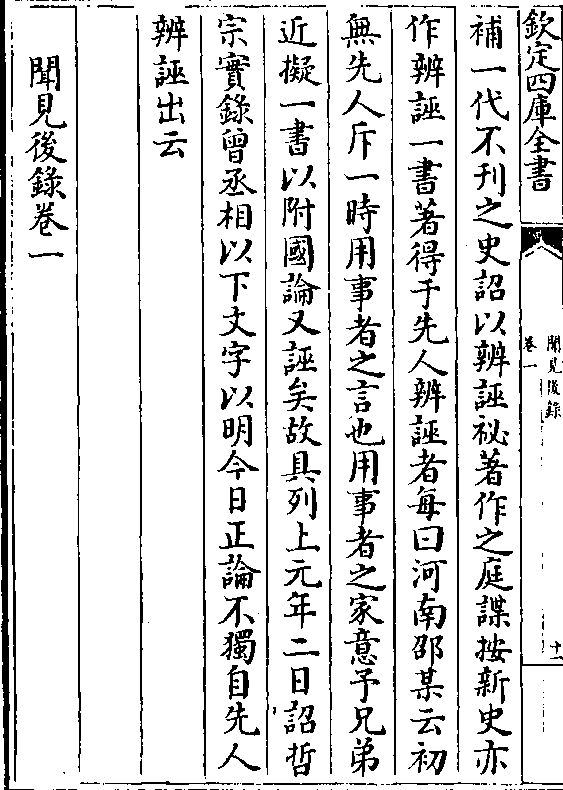 欽定四庫全書
聞見後録
卷一
十一
補一代不刊之史詔以辨誣祕著作之庭謀按新史亦
作辨誣一書著得于先人辨誣者每曰河南邵某云初
無先人斥一時用事者之言也用事者之家意予兄弟
近擬一書以附國論又誣矣故具列上元年二日詔哲
宗實錄曾丞相以下文字以明今日正論不獨自先人
辨誣出云
聞見後錄卷一